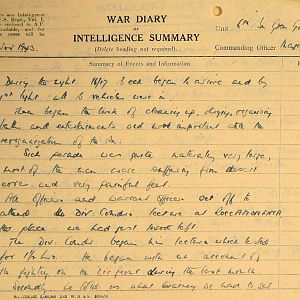 and Intelligence
F.S. Regs., Vol. I.
WAR DIARY
OR
INTELLIGENCE SUMMARY
(Delete heading not required).
Unit
Commanding Officer
Nov 1943.
Summary of Events and Information
During the night 16/17 Bn began to arrive and by
1st light all vehicles were in.
Then began the task of cleaning up, drying, organising
baths and entertainments and most important able the
reorganisation of the Bn.
Sick parade was quite naturally very large,
most of the men were suffering from desert
sores and very painful feet.
All officers and warrant officers set off to
attend the Div. Comdrs lecture at ROCCAMONFINA
the place we had just moved left.
The Div. Comdr began his lecture which lasted
for 1½ hrs. He began with an account of
the fighting on the Div front during the last month.
Secondly he told us what training he had to get